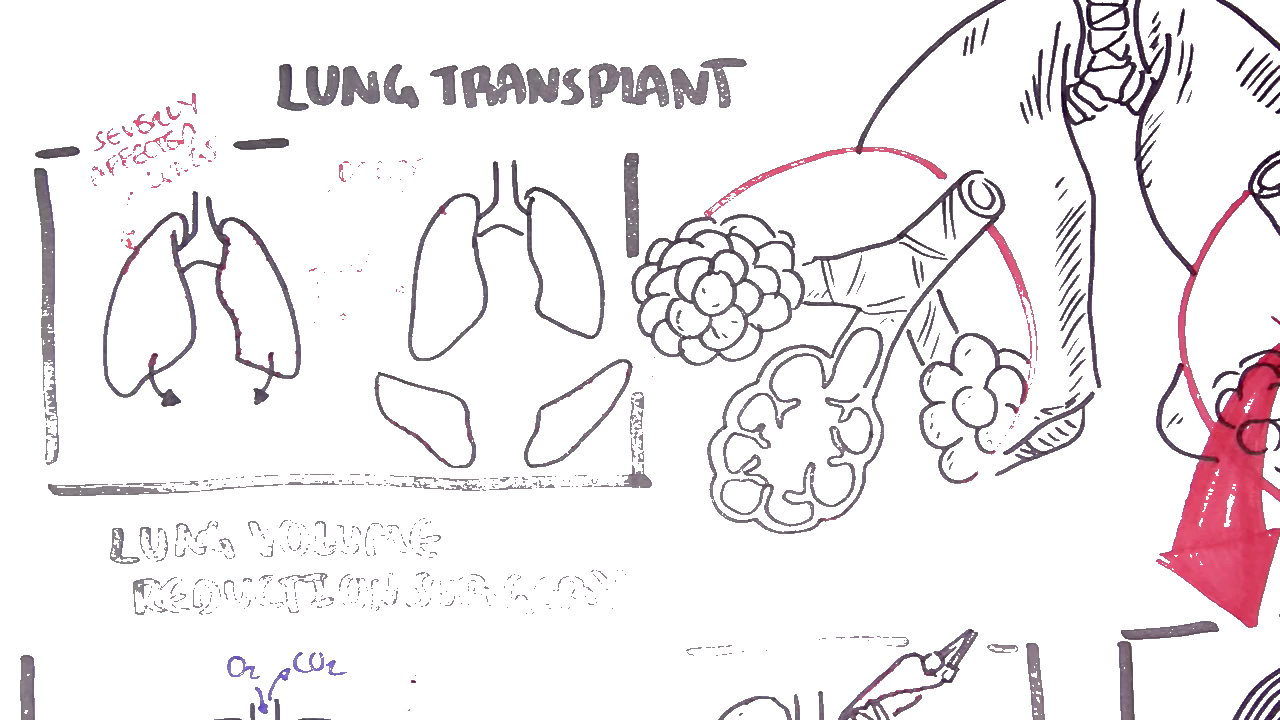 LUNG TRANSPLANT
SEVERLY
AFFECTED
LUNGS
LUNG VOLUME
REDUCTION SURGERY
O2 CO2